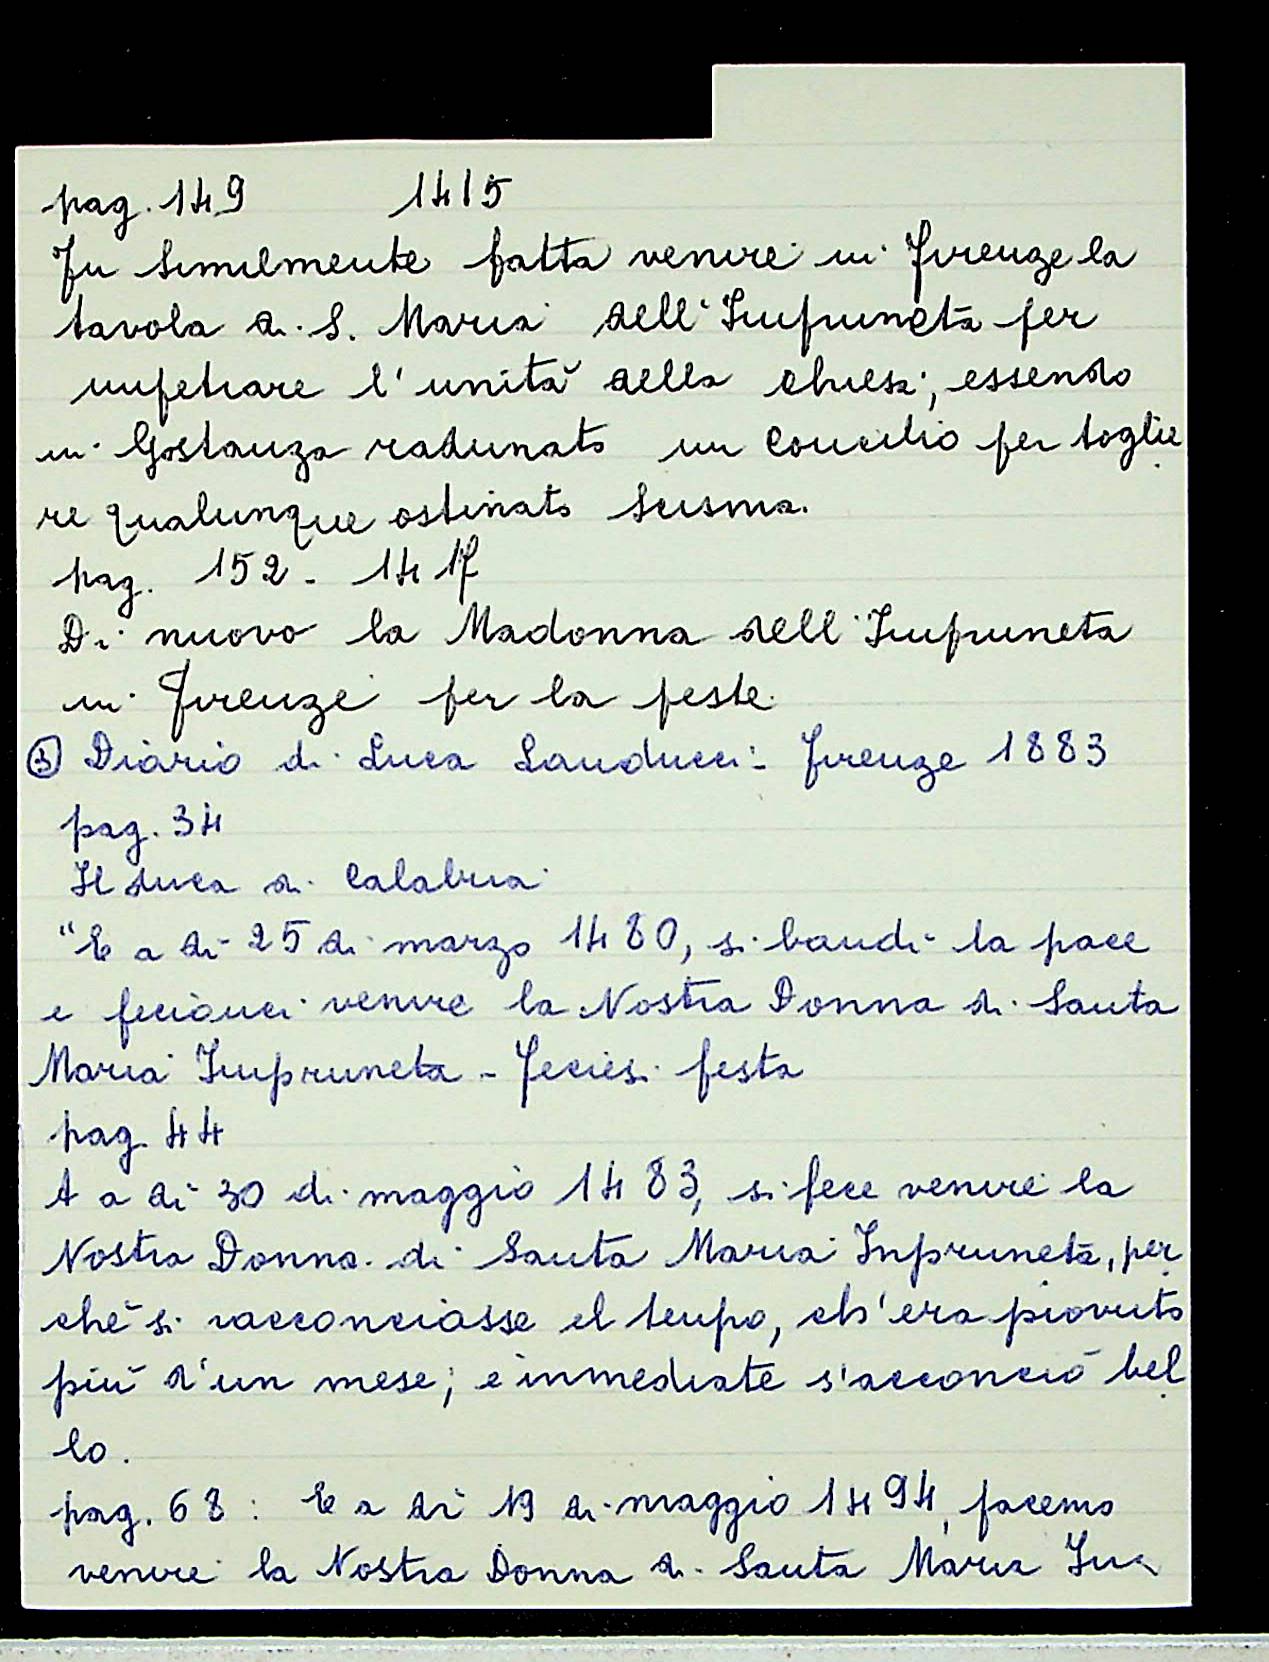 pag. 149 1415
Fu similmente fatta venire in Firenze la
tavola di S. Maria dell'Impruneta per
impetrare l'unità della chiesa, essendo
in Gostanza radunato un Concilio per toglie
re qualunque ostinato scisma.
pag. 152 - 1417
Di nuovo la Madonna dell'Impruneta
in Firenze per la peste.
③ Diario di Luca Landucci - Firenze 1883
pag. 34
Il duca di Calabria
"E a dì 25 di marzo 1480, si bandì la pace
e fecionci venire la Nostra Donna di Santa
Maria Impruneta - Feciesi festa
pag. 44
A a dì 30 di maggio 1483, si fece venire la
Nostra Donna di Santa Maria Inpruneta, per
chè si racconciasse el tenpo, ch'era piovuto
più d'un mese; e inmediate s'acconciò bel
lo.
pag. 68 : E a dì 19 di maggio 1494, facemo
venire la Nostra Donna di Santa Maria In